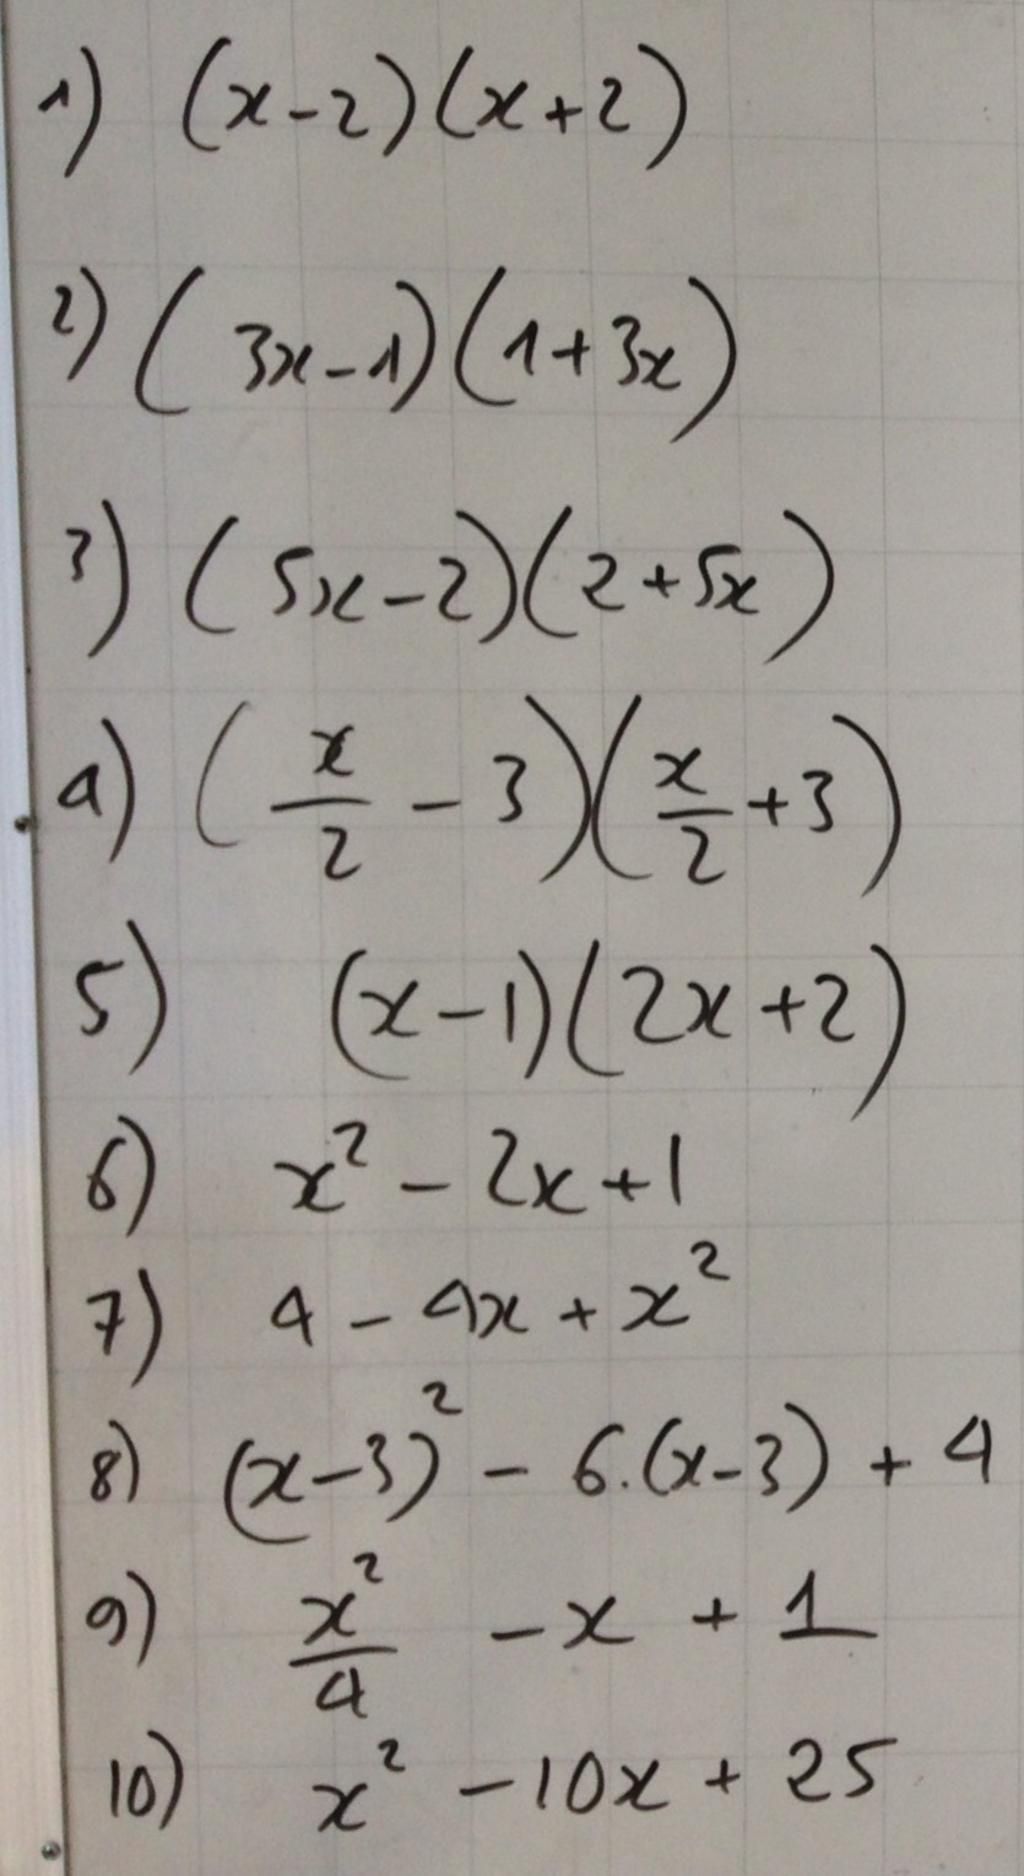 1) (x-2)(x+2)
2) (3x-1)(1+3x)
3) (5x-2)(2+5x)
4) (x/2 - 3)(x/2 + 3)
5) (x-1)(2x+2)
6) x² - 2x + 1
7) 4 - 4x + x²
8) (x-3)² - 6.(x-3) + 4
9) x²/4 - x + 1
10) x² - 10x + 25